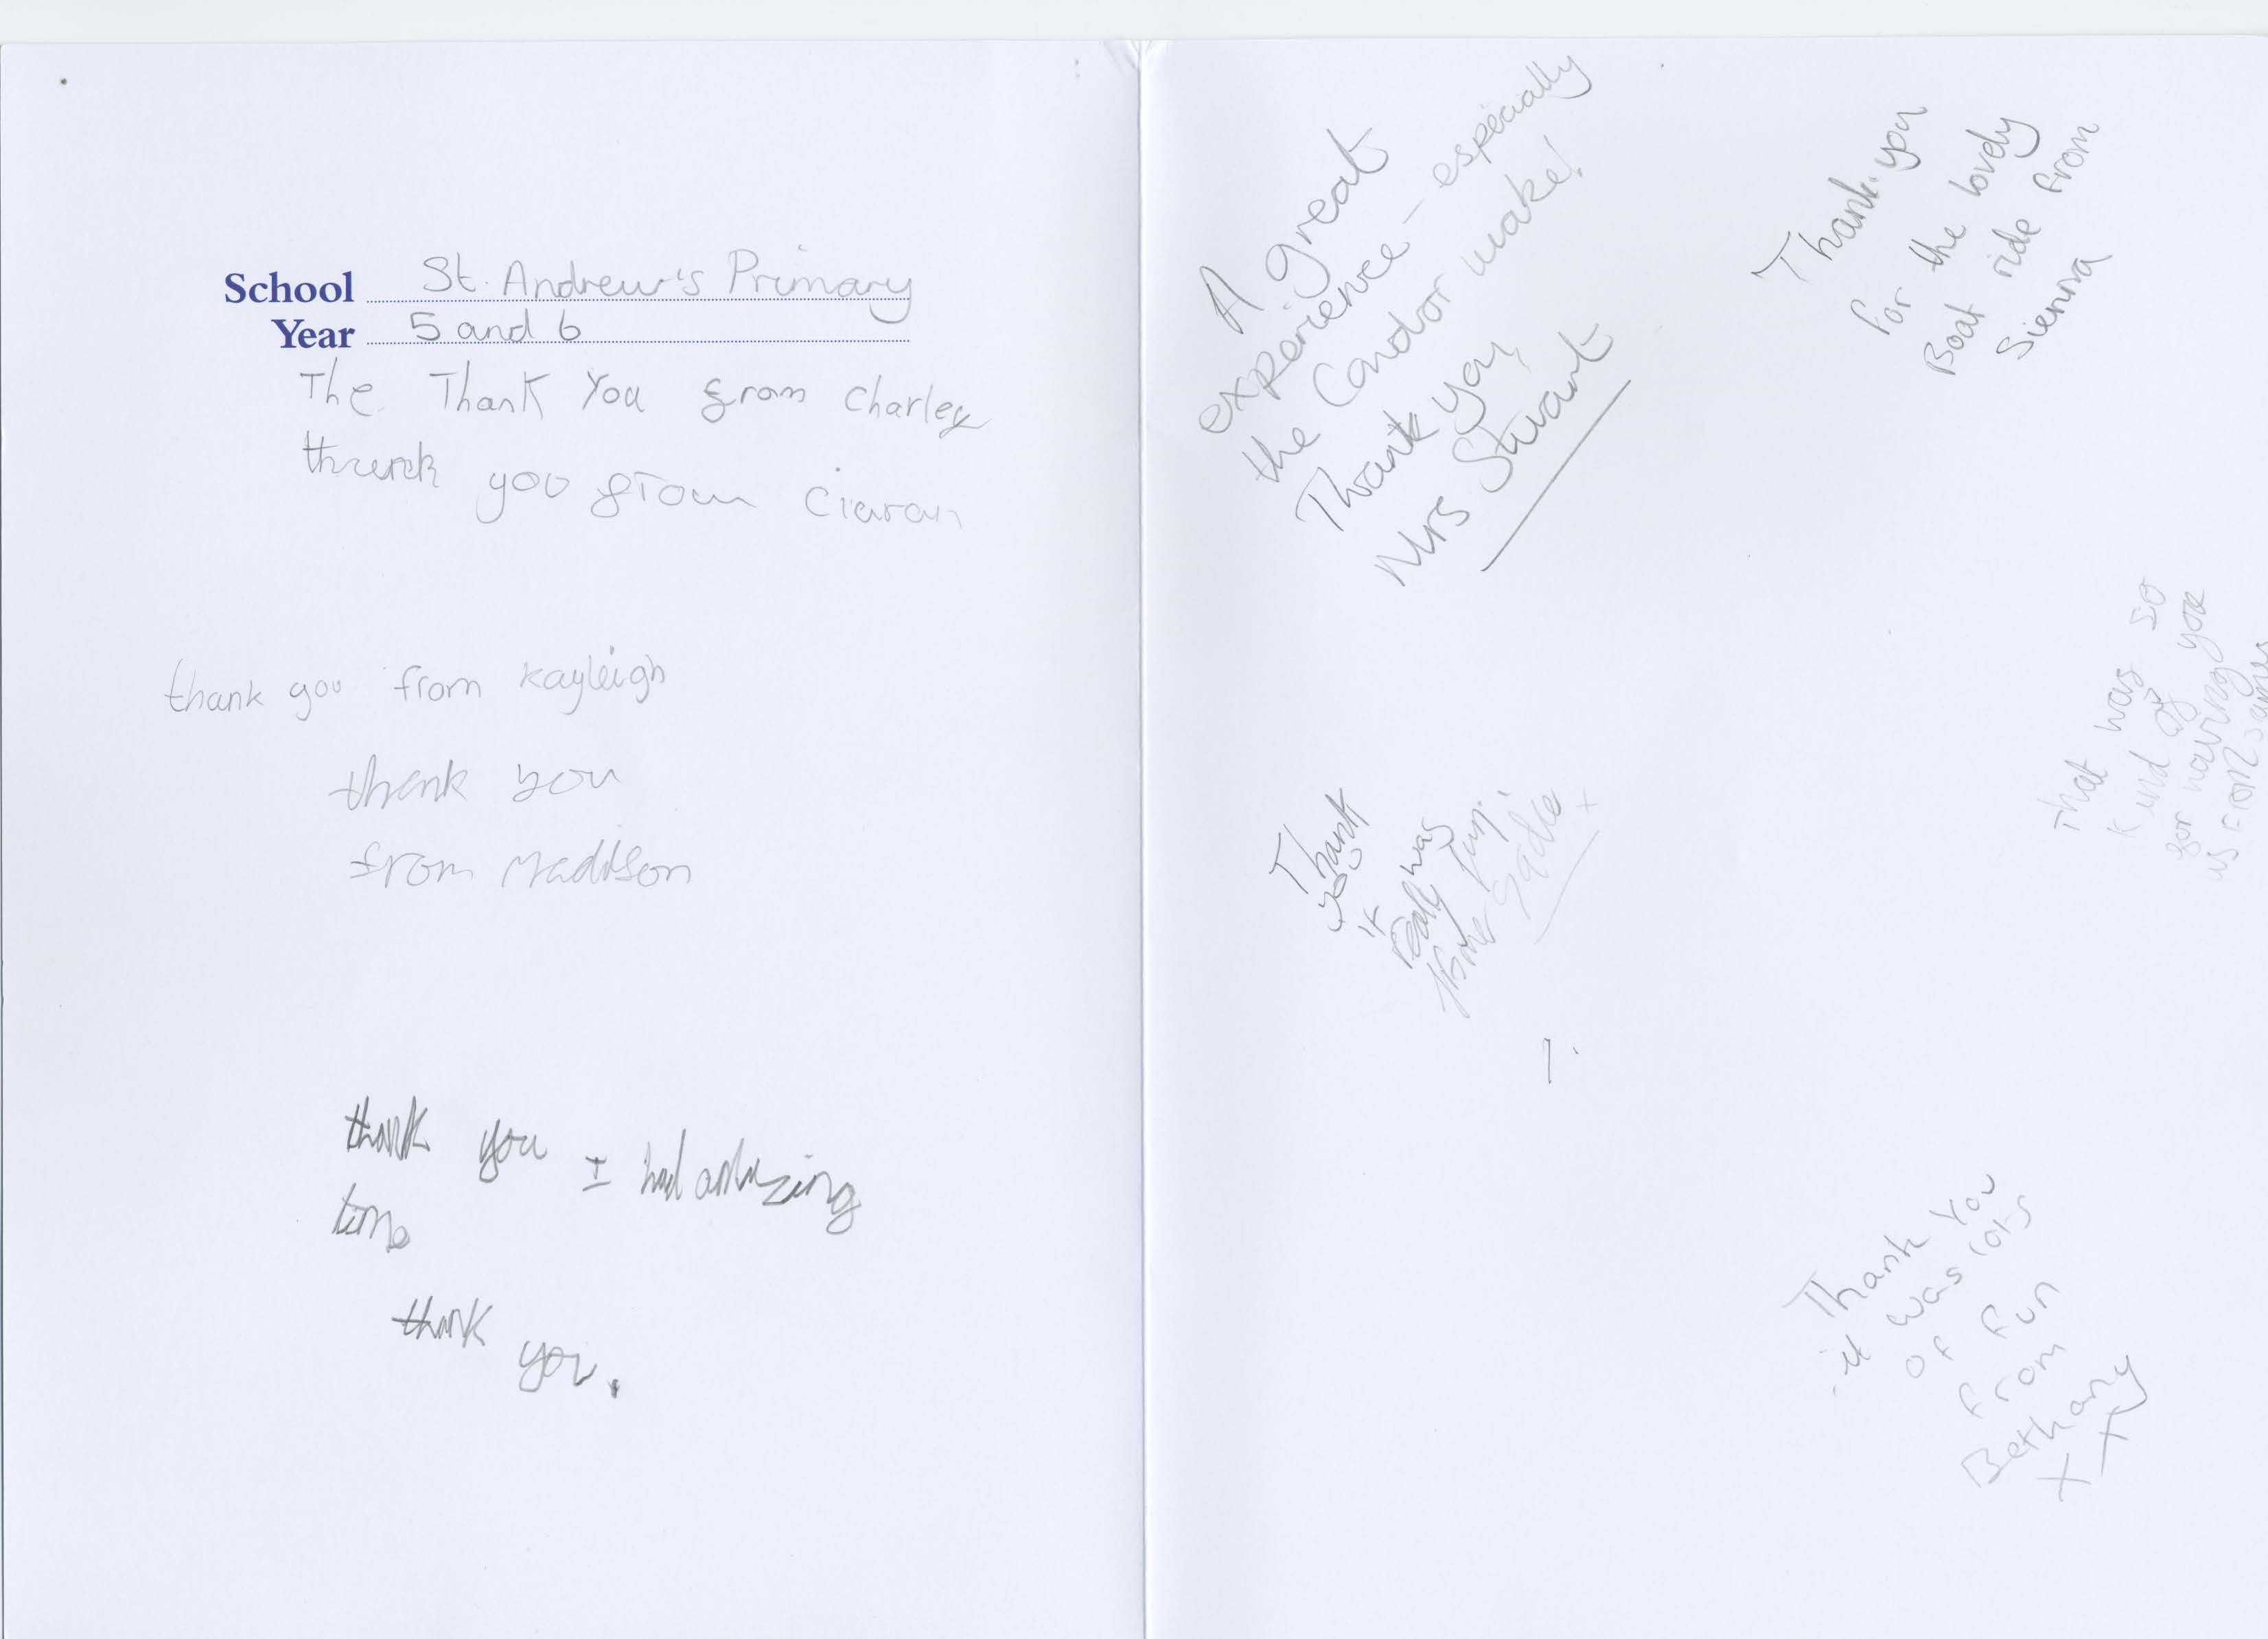 School St. Andrew's Primary
Year 5 and 6
The Thank You from Charley
thank you from Ciaran
thank you from Kayleigh
thank you
from Madison
thank you I had amazing
time
thank you.
A great
experience - especially
the Condor wake!
Thank you,
Mrs Stuart
Thank you
for the lovely
Boat ride from
Sienna
That was so
kind of you
for having
us from
Thank
you
it
really was
fun!
Sadie x
Thank You
it was lots
of fun
from
Bethany
x x